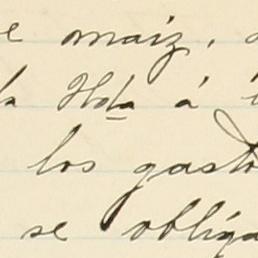 e maiz,
la Hda á
los gasto
se obliga